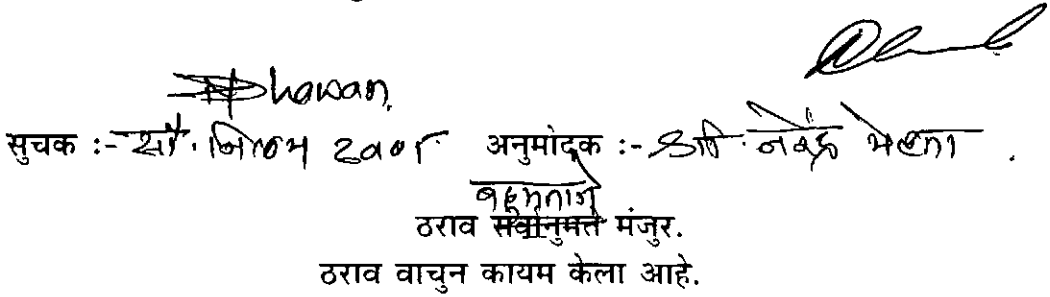 Dhawan
सुचक :- सौ. निलम ढवण अनुमोदक :- श्री. नरेंद्र मेहता .
बहुमताने
ठराव सर्वानुमते मंजुर.
ठराव वाचुन कायम केला आहे.